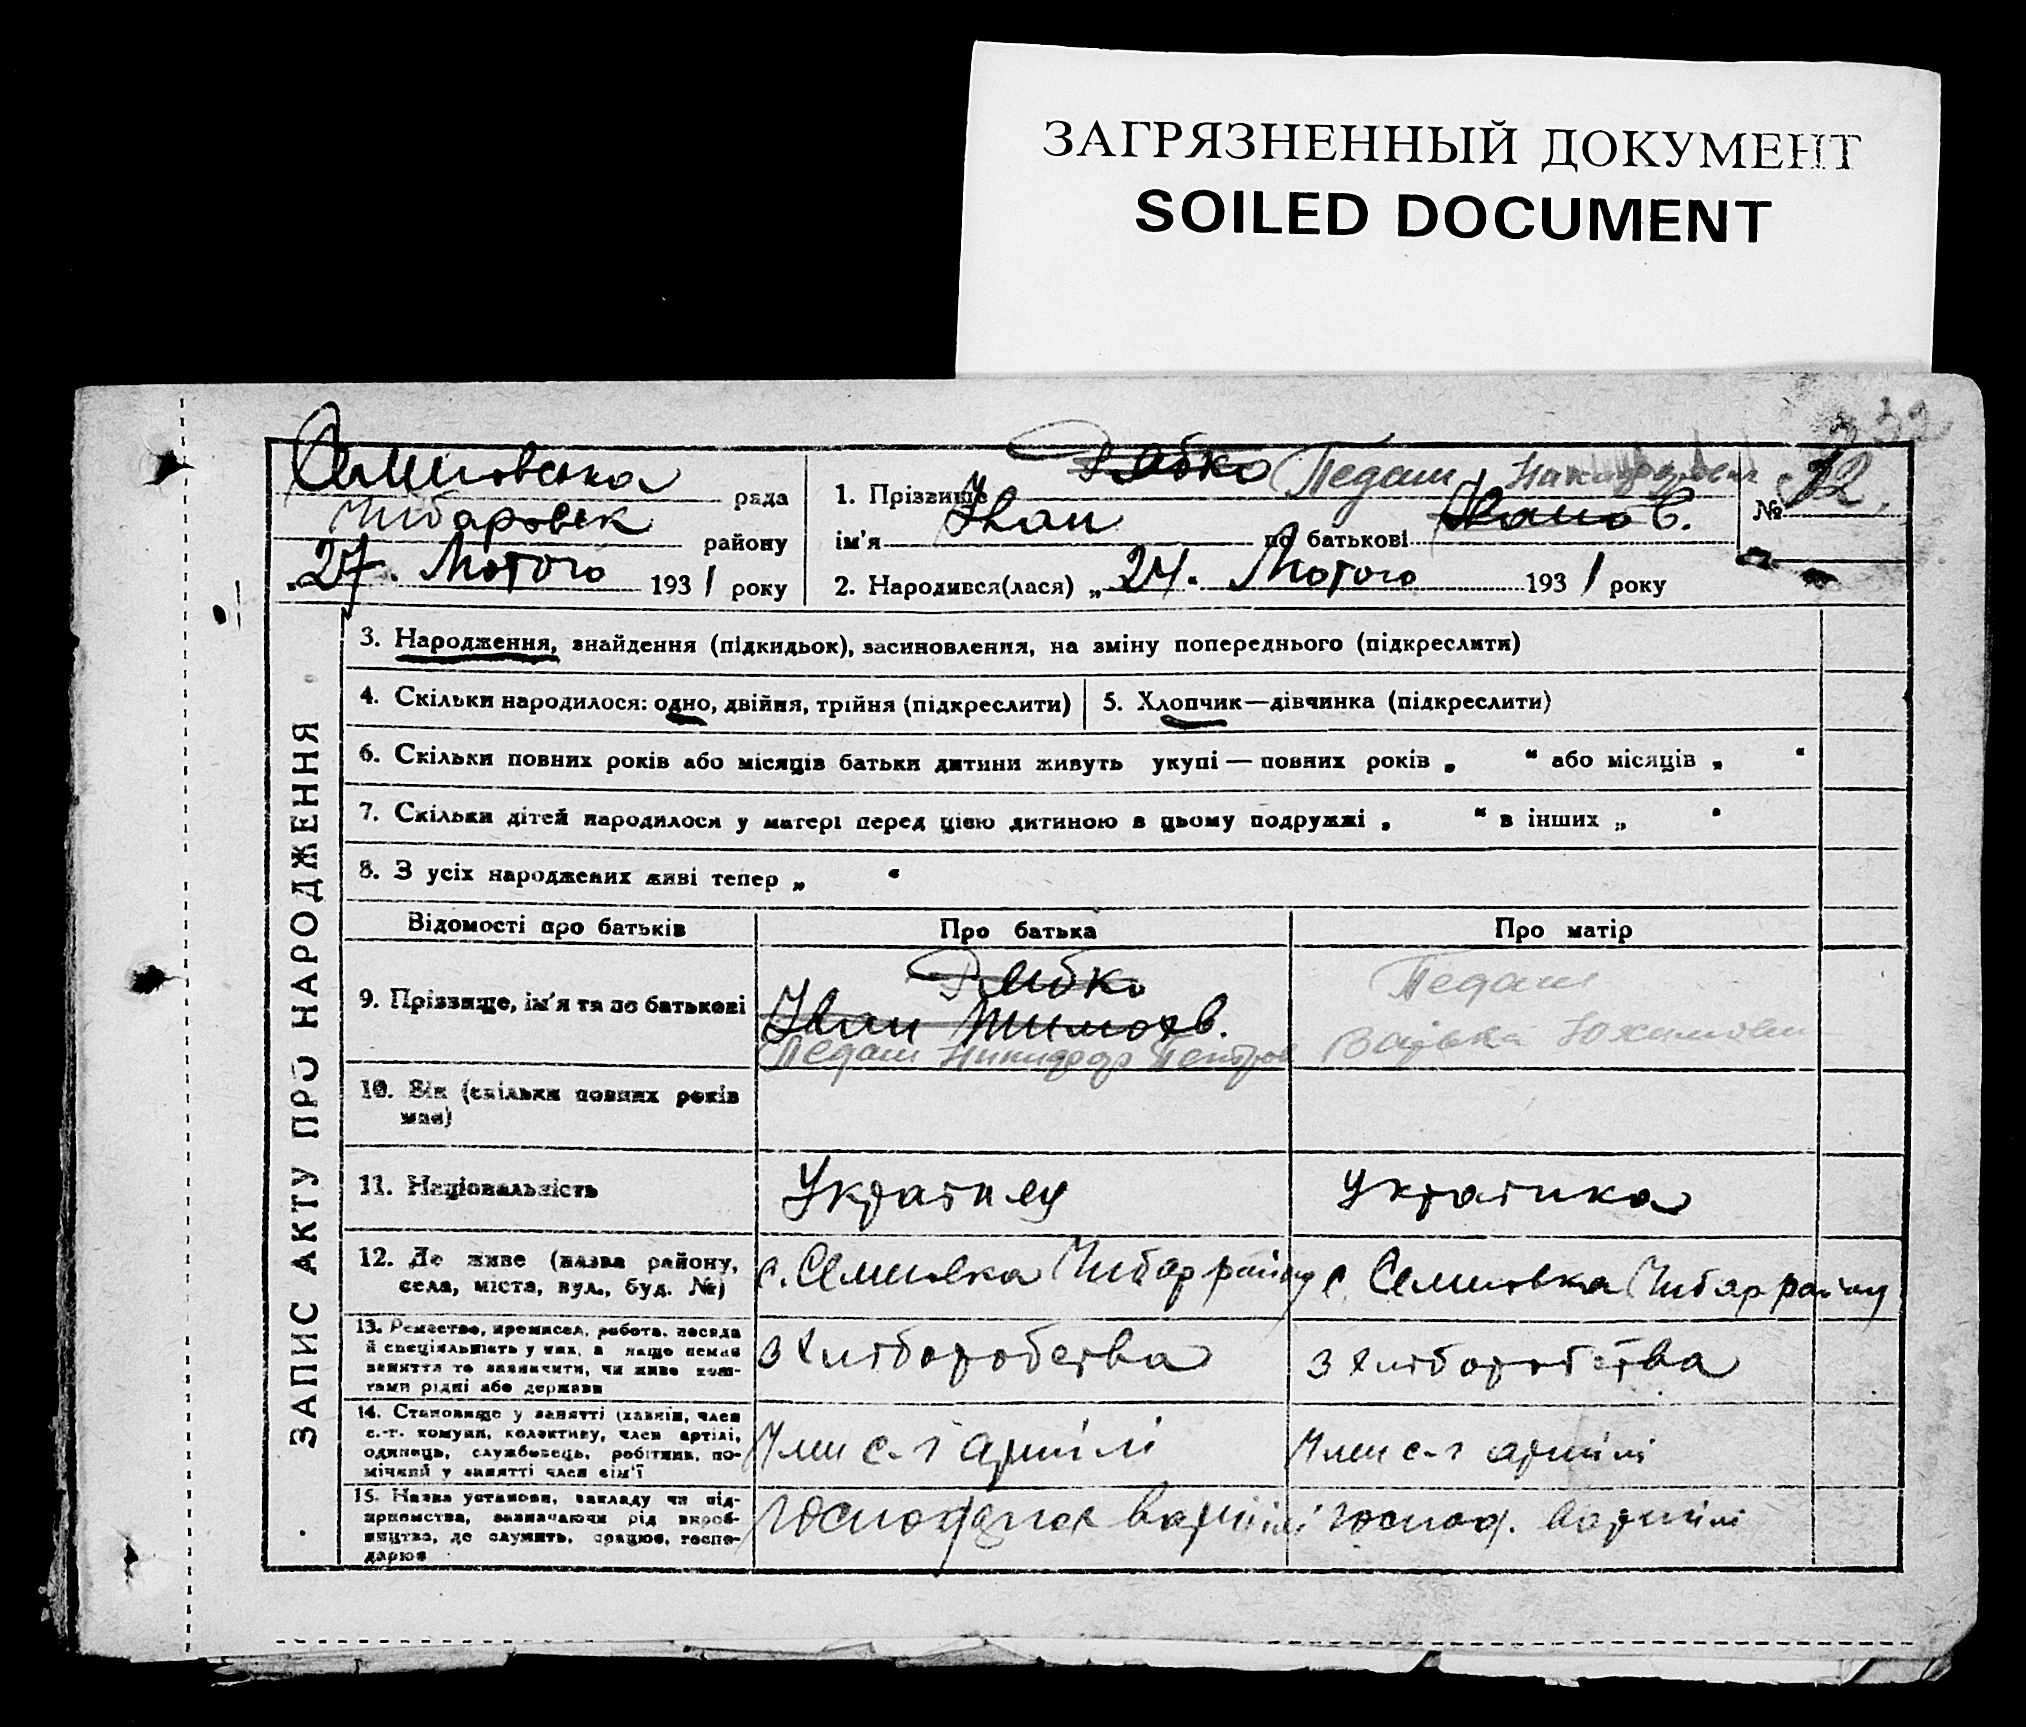 ЗАГРЯЗНЕННЫЙ ДОКУМЕНТ
SOILED DOCUMENT
рада
району
27. Лютого 1931 року
1. Прізвище Рябко Педаш
ім'я Іван по батькові Іванов.
2. Народився(лася) „24. Лютого 1931 року
№ 12.
ЗАПИС АКТУ ПРО НАРОДЖЕННЯ
3. Народження, знайдення (підкидьок), засиновлення, на зміну попереднього (підкреслити)
4. Скільки народилося: одно, двійня, трійня (підкреслити)
5. Хлопчик—дівчинка (підкреслити)
6. Скільки повних років або місяців батьки дитини живуть укупі — повних років „ “ або місяців „ “
7. Скільки дітей народилося у матері перед цією дитиною в цьому подружжі „ “ в інших „ “
8. З усіх народжених живі тепер „ “
Відомості про батьків
Про батька
Про матір
9. Прізвище, ім'я та по батькові
Рябко
Іван Тимохв.
Педаш Никифор Петров
Педаш
10. Вік (скільки повних років
має)
11. Національність
Українец
Українка
12. Де живе (назва району,
села, міста, вул., буд. №)
с. Семиновка Чубар району
с. Семиновка Чубар району
13. Ремество, промисел, робота, посада
й спеціяльність у них, а якщо немає
заняття то зазначити, чи живе кош-
тами рідні або держави
з хліборобства
з хліборобства
14. Становище у занятті (хазяїн, член
с.-г. комуни, колективу, член артілі,
одинець, службовець, робітник, по-
мічний у занятті член сім'ї
Член с-г артілі
Член с-г артілі
15. Назва установи, закладу чи під-
приємства, зазначаючи рід вироб-
ництва, де служить, працює, госпо-
дарює
вартілі
господ. вартілі